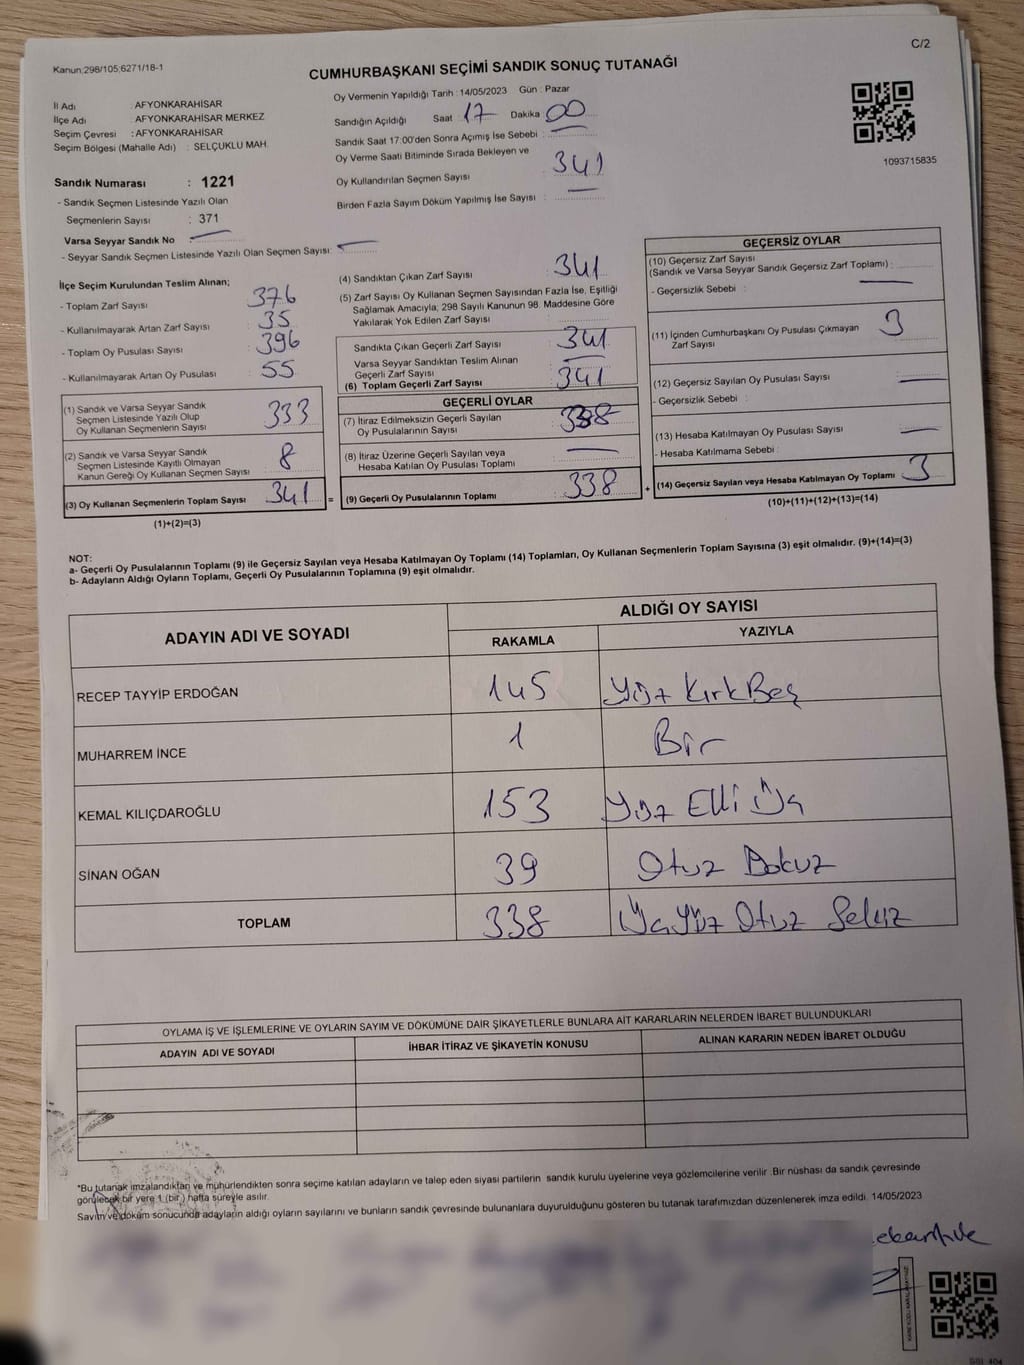 C/2
Kanun:298/105;6271/18-1
CUMHURBAŞKANI SEÇİMİ SANDIK SONUÇ TUTANAĞI
İl Adı : AFYONKARAHİSAR
İlçe Adı : AFYONKARAHİSAR MERKEZ
Seçim Çevresi : AFYONKARAHİSAR
Seçim Bölgesi (Mahalle Adı) : SELÇUKLU MAH.
Sandık Numarası : 1221
- Sandık Seçmen Listesinde Yazılı Olan
Seçmenlerin Sayısı : 371
Varsa Seyyar Sandık No :
- Seyyar Sandık Seçmen Listesinde Yazılı Olan Seçmen Sayısı:
Oy Vermenin Yapıldığı Tarih : 14/05/2023 Gün : Pazar
Sandığın Açıldığı Saat : 17 Dakika 00
Sandık Saat 17:00'den Sonra Açımış İse Sebebi :
Oy Verme Saati Bitiminde Sırada Bekleyen ve
Oy Kullandırılan Seçmen Sayısı 341
Birden Fazla Sayım Döküm Yapılmış İse Sayısı :
1093715835
İlçe Seçim Kurulundan Teslim Alınan;
- Toplam Zarf Sayısı 376
- Kullanılmayarak Artan Zarf Sayısı 35
- Toplam Oy Pusulası Sayısı 396
- Kullanılmayarak Artan Oy Pusulası 55
(1) Sandık ve Varsa Seyyar Sandık
Seçmen Listesinde Yazılı Olup
Oy Kullanan Seçmenlerin Sayısı 333
(2) Sandık ve Varsa Seyyar Sandık
Seçmen Listesinde Kayıtlı Olmayan
Kanun Gereği Oy Kullanan Seçmen Sayısı 8
(3) Oy Kullanan Seçmenlerin Toplam Sayısı 341 =
(1)+(2)=(3)
(4) Sandıktan Çıkan Zarf Sayısı 341
(5) Zarf Sayısı Oy Kullanan Seçmen Sayısından Fazla İse, Eşitliği
Sağlamak Amacıyla; 298 Sayılı Kanunun 98. Maddesine Göre
Yakılarak Yok Edilen Zarf Sayısı
Sandıkta Çıkan Geçerli Zarf Sayısı 341
Varsa Seyyar Sandıktan Teslim Alınan
Geçerli Zarf Sayısı
(6) Toplam Geçerli Zarf Sayısı 341
GEÇERLİ OYLAR
(7) İtiraz Edilmeksizin Geçerli Sayılan
Oy Pusulalarının Sayısı 338
(8) İtiraz Üzerine Geçerli Sayılan veya
Hesaba Katılan Oy Pusulası Toplamı
(9) Geçerli Oy Pusulalarının Toplamı 338 +
GEÇERSİZ OYLAR
(10) Geçersiz Zarf Sayısı
(Sandık ve Varsa Seyyar Sandık Geçersiz Zarf Toplamı) :
- Geçersizlik Sebebi :
(11) İçinden Cumhurbaşkanı Oy Pusulası Çıkmayan
Zarf Sayısı 3
(12) Geçersiz Sayılan Oy Pusulası Sayısı
- Geçersizlik Sebebi :
(13) Hesaba Katılmayan Oy Pusulası Sayısı
- Hesaba Katılmama Sebebi :
(14) Geçersiz Sayılan veya Hesaba Katılmayan Oy Toplamı 3
(10)+(11)+(12)+(13)=(14)
NOT:
a- Geçerli Oy Pusulalarının Toplamı (9) ile Geçersiz Sayılan veya Hesaba Katılmayan Oy Toplamı (14) Toplamları, Oy Kullanan Seçmenlerin Toplam Sayısına (3) eşit olmalıdır. (9)+(14)=(3)
b- Adayların Aldığı Oyların Toplamı, Geçerli Oy Pusulalarının Toplamına (9) eşit olmalıdır.
ADAYIN ADI VE SOYADI
ALDIĞI OY SAYISI
RAKAMLA YAZIYLA
RECEP TAYYİP ERDOĞAN 145 Yüz Kırk Beş
MUHARREM İNCE 1 Bir
KEMAL KILIÇDAROĞLU 153 Yüz Elli Üç
SİNAN OĞAN 39 Otuz Dokuz
TOPLAM 338 Üç Yüz Otuz Sekiz
OYLAMA İŞ VE İŞLEMLERİNE VE OYLARIN SAYIM VE DÖKÜMÜNE DAİR ŞİKAYETLERLE BUNLARA AİT KARARLARIN NELERDEN İBARET BULUNDUKLARI
ADAYIN ADI VE SOYADI İHBAR İTİRAZ VE ŞİKAYETİN KONUSU ALINAN KARARIN NEDEN İBARET OLDUĞU
*Bu tutanak imzalandıktan ve mühürlendikten sonra seçime katılan adayların ve talep eden siyasi partilerin sandık kurulu üyelerine veya gözlemcilerine verilir. Bir nüshası da sandık çevresinde
görülebilek bir yere 1 (bir) hafta süreyle asılır.
Sayım ve döküm sonucunda adayların aldığı oyların sayılarını ve bunların sandık çevresinde bulunanlara duyurulduğunu gösteren bu tutanak tarafımızdan düzenlenerek imza edildi. 14/05/2023